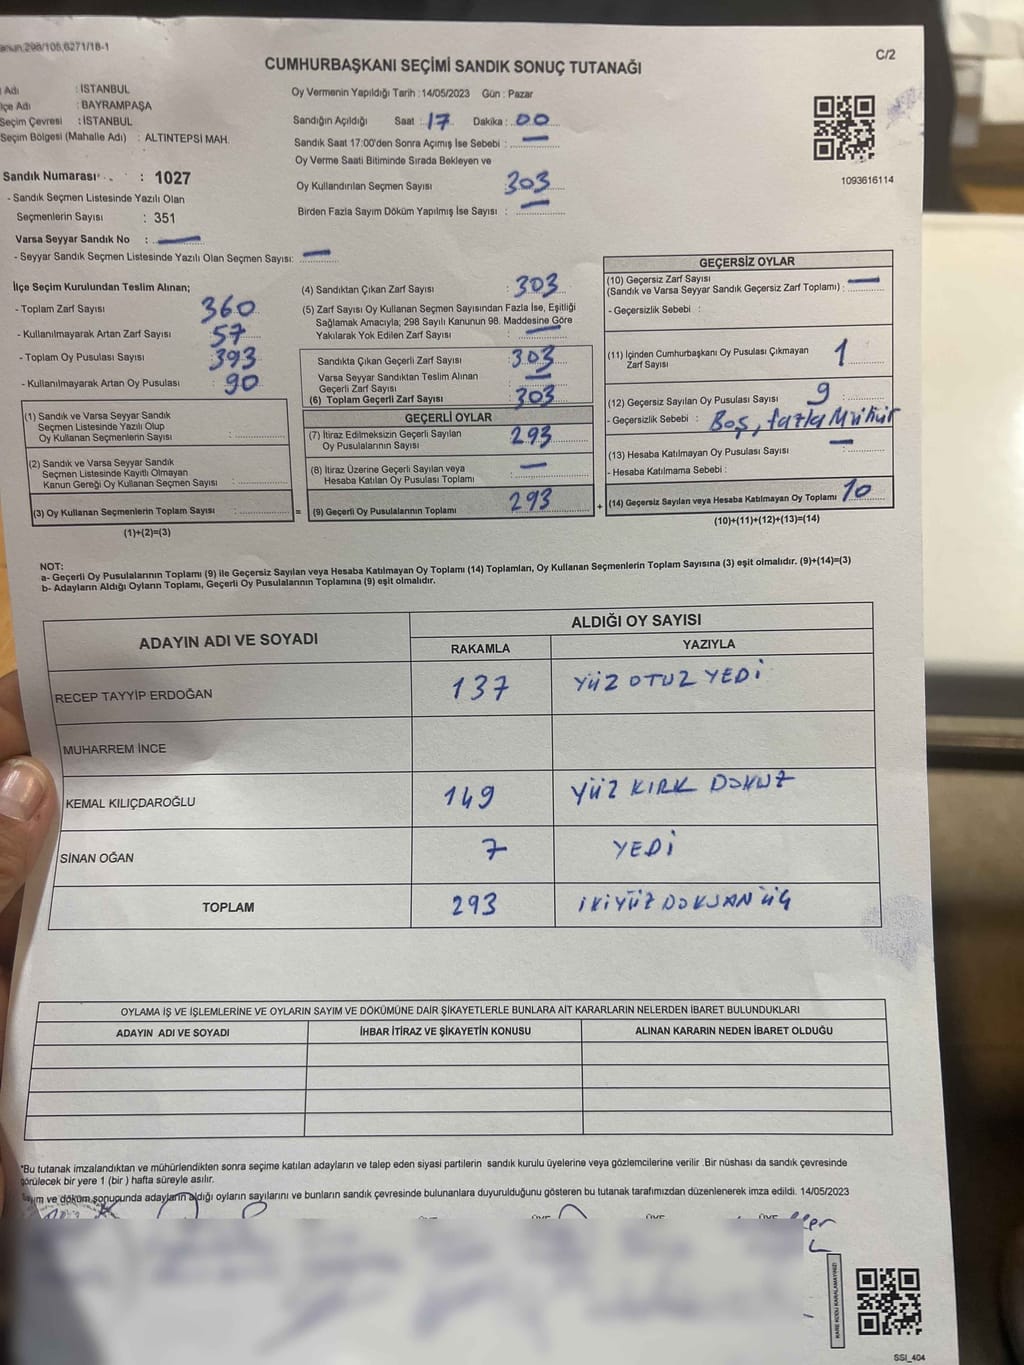 anun,298/105,6271/18-1
C/2
CUMHURBAŞKANI SEÇİMİ SANDIK SONUÇ TUTANAĞI
Adı : İSTANBUL
lçe Adı : BAYRAMPAŞA
Seçim Çevresi : İSTANBUL
Seçim Bölgesi (Mahalle Adı) : ALTINTEPSİ MAH.
Oy Vermenin Yapıldığı Tarih :14/05/2023 Gün : Pazar
Sandığın Açıldığı Saat : 17 Dakika : 00
Sandık Saat 17:00'den Sonra Açımış İse Sebebi : —
Oy Verme Saati Bitiminde Sırada Bekleyen ve
Oy Kullandırılan Seçmen Sayısı 303
Birden Fazla Sayım Döküm Yapılmış İse Sayısı : —
1093616114
Sandık Numarası : 1027
- Sandık Seçmen Listesinde Yazılı Olan
Seçmenlerin Sayısı : 351
Varsa Seyyar Sandık No : —
- Seyyar Sandık Seçmen Listesinde Yazılı Olan Seçmen Sayısı: —
İlçe Seçim Kurulundan Teslim Alınan;
- Toplam Zarf Sayısı 360
- Kullanılmayarak Artan Zarf Sayısı 57
- Toplam Oy Pusulası Sayısı 393
- Kullanılmayarak Artan Oy Pusulası 90
(1) Sandık ve Varsa Seyyar Sandık
Seçmen Listesinde Yazılı Olup
Oy Kullanan Seçmenlerin Sayısı :
(2) Sandık ve Varsa Seyyar Sandık
Seçmen Listesinde Kayıtlı Olmayan
Kanun Gereği Oy Kullanan Seçmen Sayısı :
(3) Oy Kullanan Seçmenlerin Toplam Sayısı :
(1)+(2)=(3)
=
(4) Sandıktan Çıkan Zarf Sayısı : 303
(5) Zarf Sayısı Oy Kullanan Seçmen Sayısından Fazla İse, Eşitliği
Sağlamak Amacıyla; 298 Sayılı Kanunun 98. Maddesine Göre
Yakılarak Yok Edilen Zarf Sayısı : —
Sandıkta Çıkan Geçerli Zarf Sayısı : 303
Varsa Seyyar Sandıktan Teslim Alınan
Geçerli Zarf Sayısı : —
(6) Toplam Geçerli Zarf Sayısı : 303
GEÇERLİ OYLAR
(7) İtiraz Edilmeksizin Geçerli Sayılan
Oy Pusulalarının Sayısı : 293
(8) İtiraz Üzerine Geçerli Sayılan veya
Hesaba Katılan Oy Pusulası Toplamı : —
(9) Geçerli Oy Pusulalarının Toplamı : 293
+
GEÇERSİZ OYLAR
(10) Geçersiz Zarf Sayısı
(Sandık ve Varsa Seyyar Sandık Geçersiz Zarf Toplamı) : —
- Geçersizlik Sebebi :
(11) İçinden Cumhurbaşkanı Oy Pusulası Çıkmayan
Zarf Sayısı : 1
(12) Geçersiz Sayılan Oy Pusulası Sayısı : 9
- Geçersizlik Sebebi : Boş, fazla Mühür
(13) Hesaba Katılmayan Oy Pusulası Sayısı : —
- Hesaba Katılmama Sebebi :
(14) Geçersiz Sayılan veya Hesaba Katılmayan Oy Toplamı : 10
(10)+(11)+(12)+(13)=(14)
NOT:
a- Geçerli Oy Pusulalarının Toplamı (9) ile Geçersiz Sayılan veya Hesaba Katılmayan Oy Toplamı (14) Toplamları, Oy Kullanan Seçmenlerin Toplam Sayısına (3) eşit olmalıdır. (9)+(14)=(3)
b- Adayların Aldığı Oyların Toplamı, Geçerli Oy Pusulalarının Toplamına (9) eşit olmalıdır.
ADAYIN ADI VE SOYADI
ALDIĞI OY SAYISI
RAKAMLA YAZIYLA
RECEP TAYYİP ERDOĞAN 137 YÜZ OTUZ YEDİ
MUHARREM İNCE
KEMAL KILIÇDAROĞLU 149 YÜZ KIRK DOKUZ
SİNAN OĞAN 7 YEDİ
TOPLAM 293 İKİYÜZ DOKSAN ÜÇ
OYLAMA İŞ VE İŞLEMLERİNE VE OYLARIN SAYIM VE DÖKÜMÜNE DAİR ŞİKAYETLERLE BUNLARA AİT KARARLARIN NELERDEN İBARET BULUNDUKLARI
ADAYIN ADI VE SOYADI İHBAR İTİRAZ VE ŞİKAYETİN KONUSU ALINAN KARARIN NEDEN İBARET OLDUĞU
*Bu tutanak imzalandıktan ve mühürlendikten sonra seçime katılan adayların ve talep eden siyasi partilerin sandık kurulu üyelerine veya gözlemcilerine verilir .Bir nüshası da sandık çevresinde
görülecek bir yere 1 (bir ) hafta süreyle asılır.
ayım ve döküm sonucunda adayların aldığı oyların sayılarını ve bunların sandık çevresinde bulunanlara duyurulduğunu gösteren bu tutanak tarafımızdan düzenlenerek imza edildi. 14/05/2023
KARE KODU KARALAMAYINIZ!
SSI_404